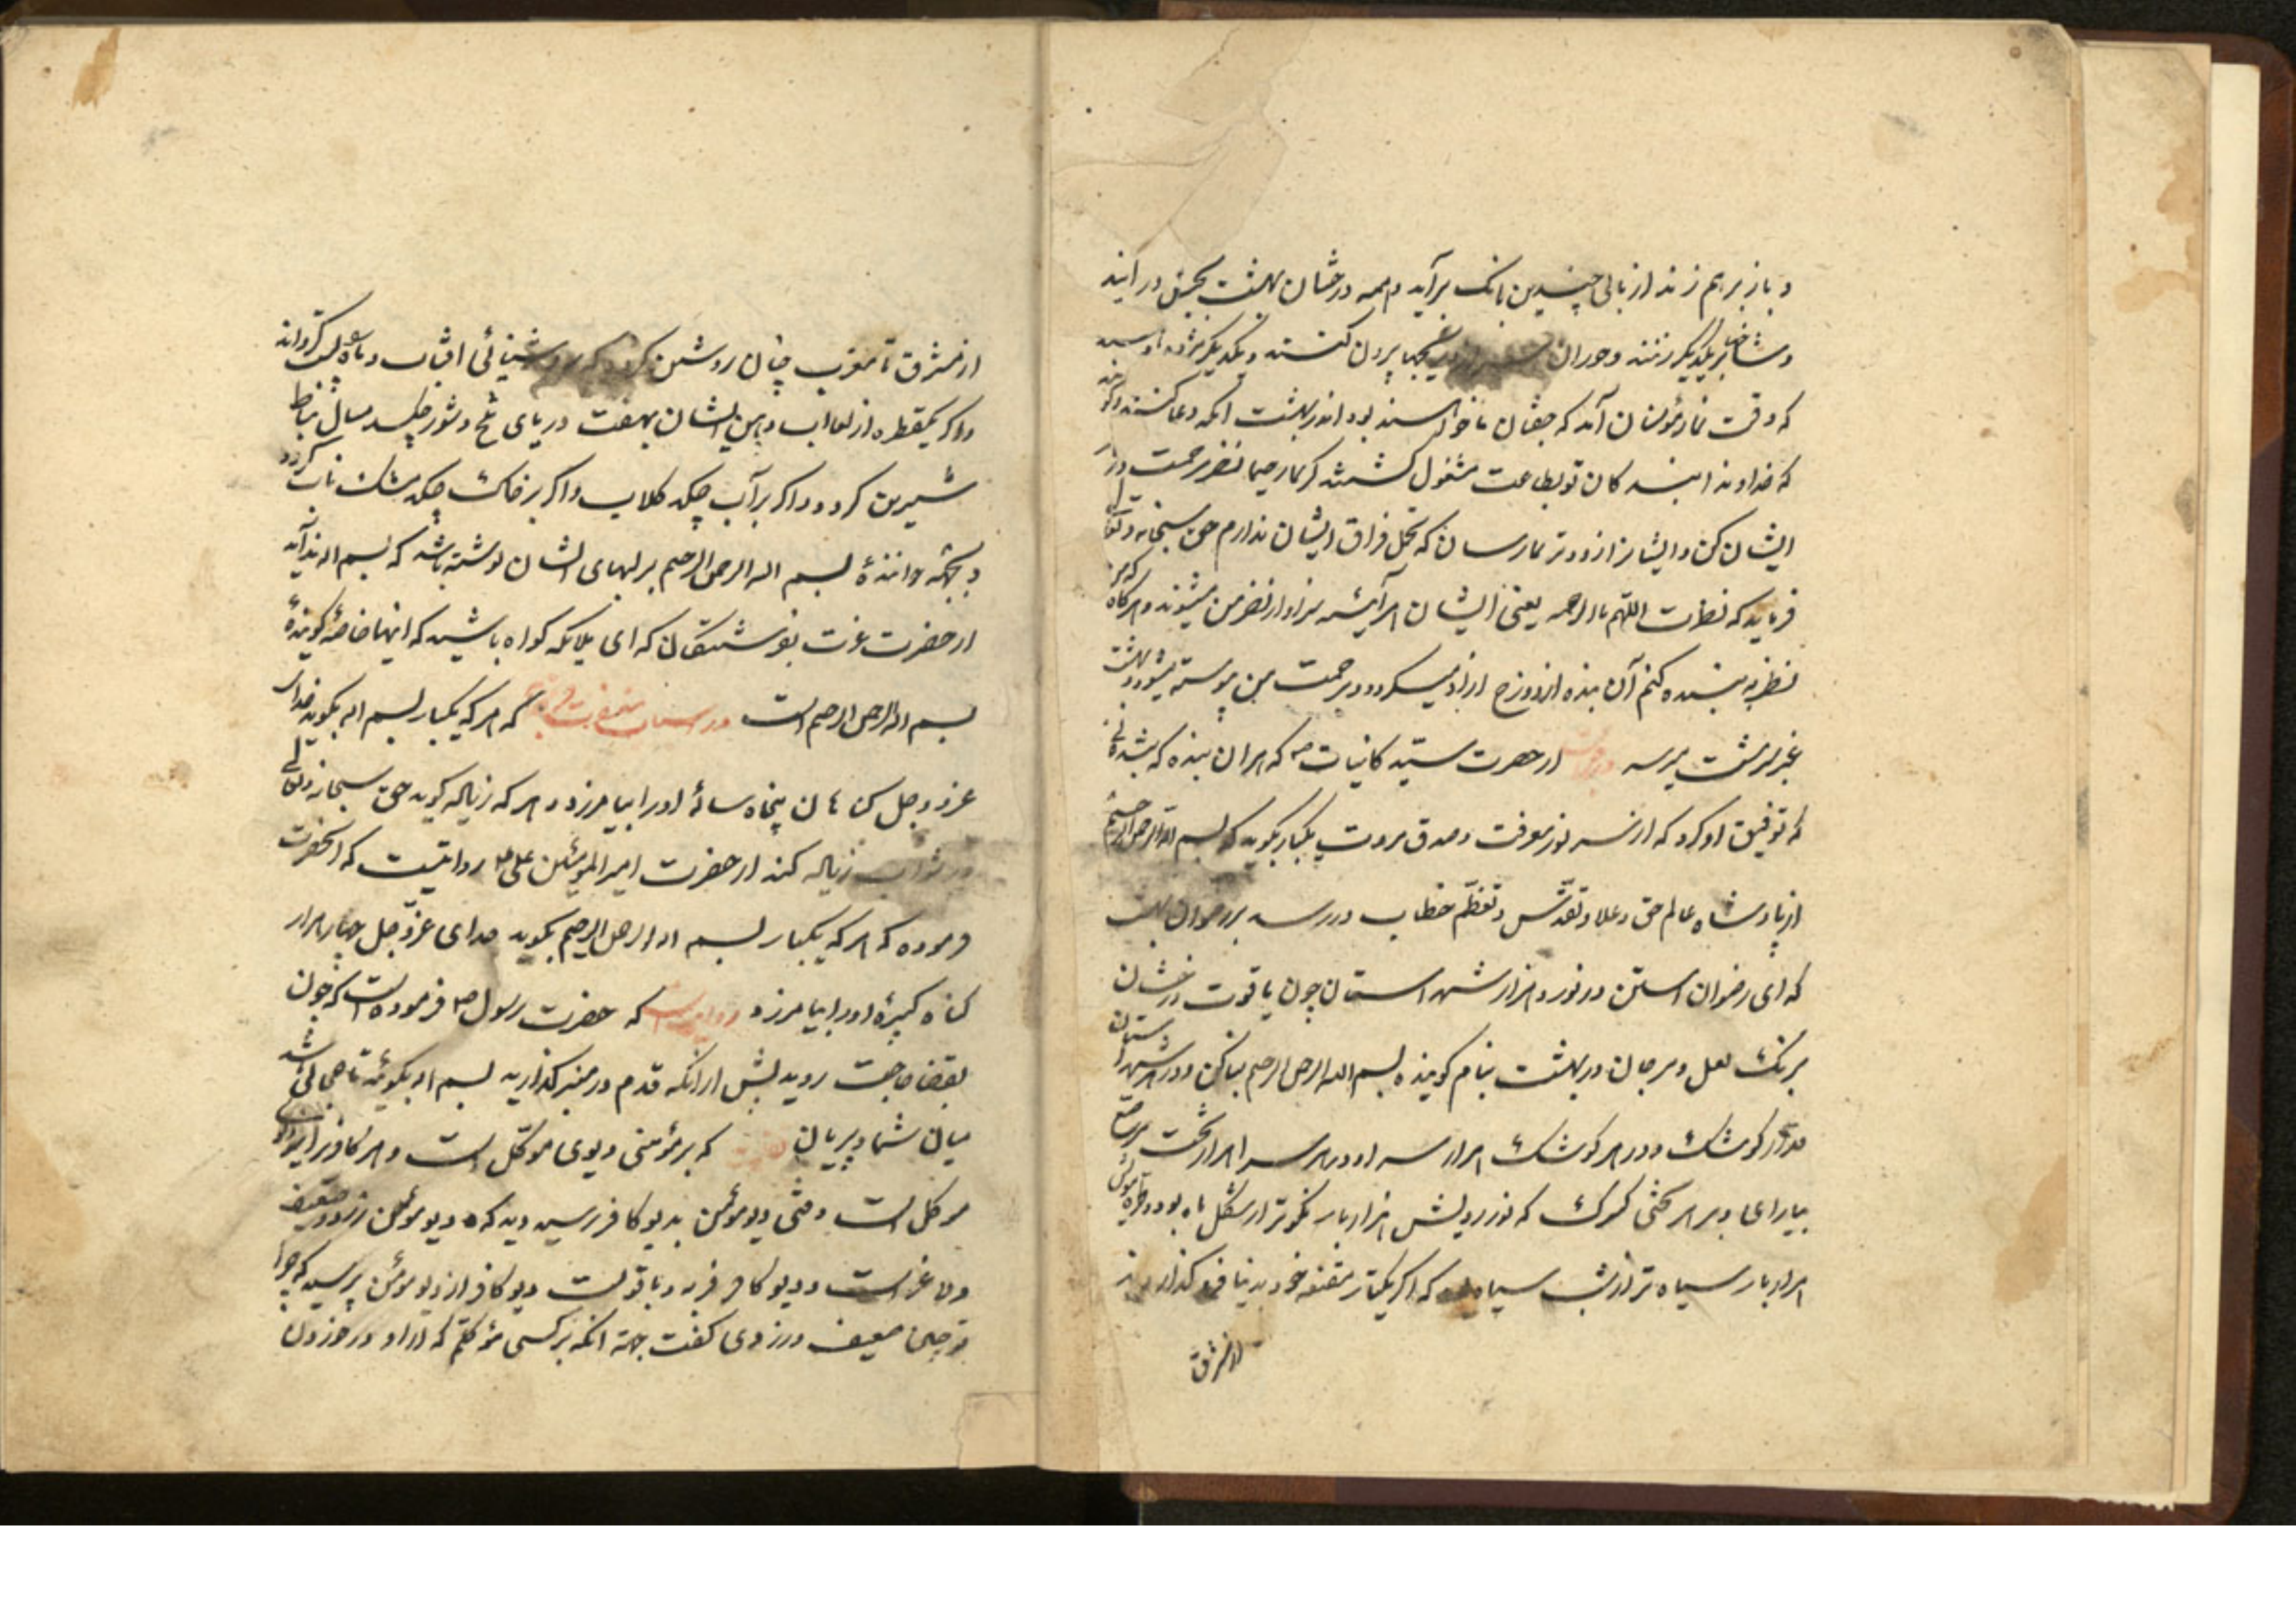 و باز بر هم زند از بالی چندین بانک برآید و همه درختان بهشت بجنبش درآیند
و شاخها بر یکدیگر زنند و حوران سر از دریچها بیرون کنند و یکدیگر را مژده
که وقت نماز مؤمنان آمد که جفتان ما خواهند بود اندر بهشت انکه دعا کنند و گویند
که خداوندا بندکان تو بطاعت مشغول کشتند کریما رحیما نظر رحمت در
ایشان کن و ایشانرا زودتر بما رسان که تحمل فراق ایشان نداریم حق سبحانه و تعالی
فرماید که نظرت الیهم بالرحمه یعنی ایشان هر آینه سزاوار نظر من میشوند و هرکاه که من
نظر به بنده کنم آن بنده از دوزخ آزاد میکردد و برحمت من پیوسته میشود و بهشت
عنبر سرشت میرسد از حضرت سید کاینات ص که هر آن بنده که بنده
که توفیق او کرد که از سر نور معرفت و صدق مروت یکبار بگوید که بسم الله الرحمن الرحیم
از پادشاه عالم حق و علا و تقدس و تعظم خطاب در رسد بر رضوان بهشت
که ای رضوان در نور هزار شهرستان چون یاقوت درخشان
برنک لعل و مرجان در بهشت بنام کوینده بسم الله الرحمن الرحیم بنا کن و در هر شهرستان
هزار کوشک و در هر کوشک هزار سرا و در هر سرا هزار تخت مرصع
بیارای و بر هر تختی که نور رویش هزار بار نکوتر از شکل ماه بود و طره مویش
هزار بار سیاه تر از شب سیاه که اگر یکتار مقنعه خود بدنیا فرو گذارند
از مشرق
از مشرق تا مغرب چنان روشن کردد که روشنائی افتاب و ماه پست کرداند
و اکر یکقطره از لعاب دهن ایشان بهفت دریای تلخ و شور چکد
شیرین کردد و اکر بر آب چکد کلاب و اکر بر خاک چکد مشک ناب کردد
و بجهته خوانندهٔ بسم الله الرحمن الرحیم بر لبهای ایشان نوشته باشد که بسم الله ندا آید
از حضرت عزت بفرشتکان که ای ملایکه کواه باشید که اینها خاصهٔ کویندهٔ
بسم الله الرحمن الرحیم است در که هر که یکبار بسم الله بکوید خدای
عز و جل کناهان پنجاه سالهٔ او را بیامرزد و هر که زیاده کوید حق سبحانه و تعالی
در ثواب زیاده کند از حضرت امیر المؤمنین علی ع روایتست که انحضرت
فرموده که هر که یکبار بسم الله الرحمن الرحیم بکوید خدای عز و جل چهار هزار
کناه کبیرهٔ او را بیامرزد روایت که حضرت رسول ص فرموده است که چون
بقضا حاجت روید پیش از انکه قدم در مبرز کذارید بسم الله بکوئید تا حجابی باشد
میان شما و پریان که بر مؤمنی دیوی موکل است و هر کافر را دیوی
موکل است وقتی دیو مؤمن بدیو کافر رسید دید که دیو مؤمن زرد و ضعیف
و لاغر است و دیو کافر فربه و با قوتست دیو کافر از دیو مؤمن پرسید که چرا
تو چنین ضعیف و زردی کفت بجهة انکه بر کسی موکلم که در خوردن